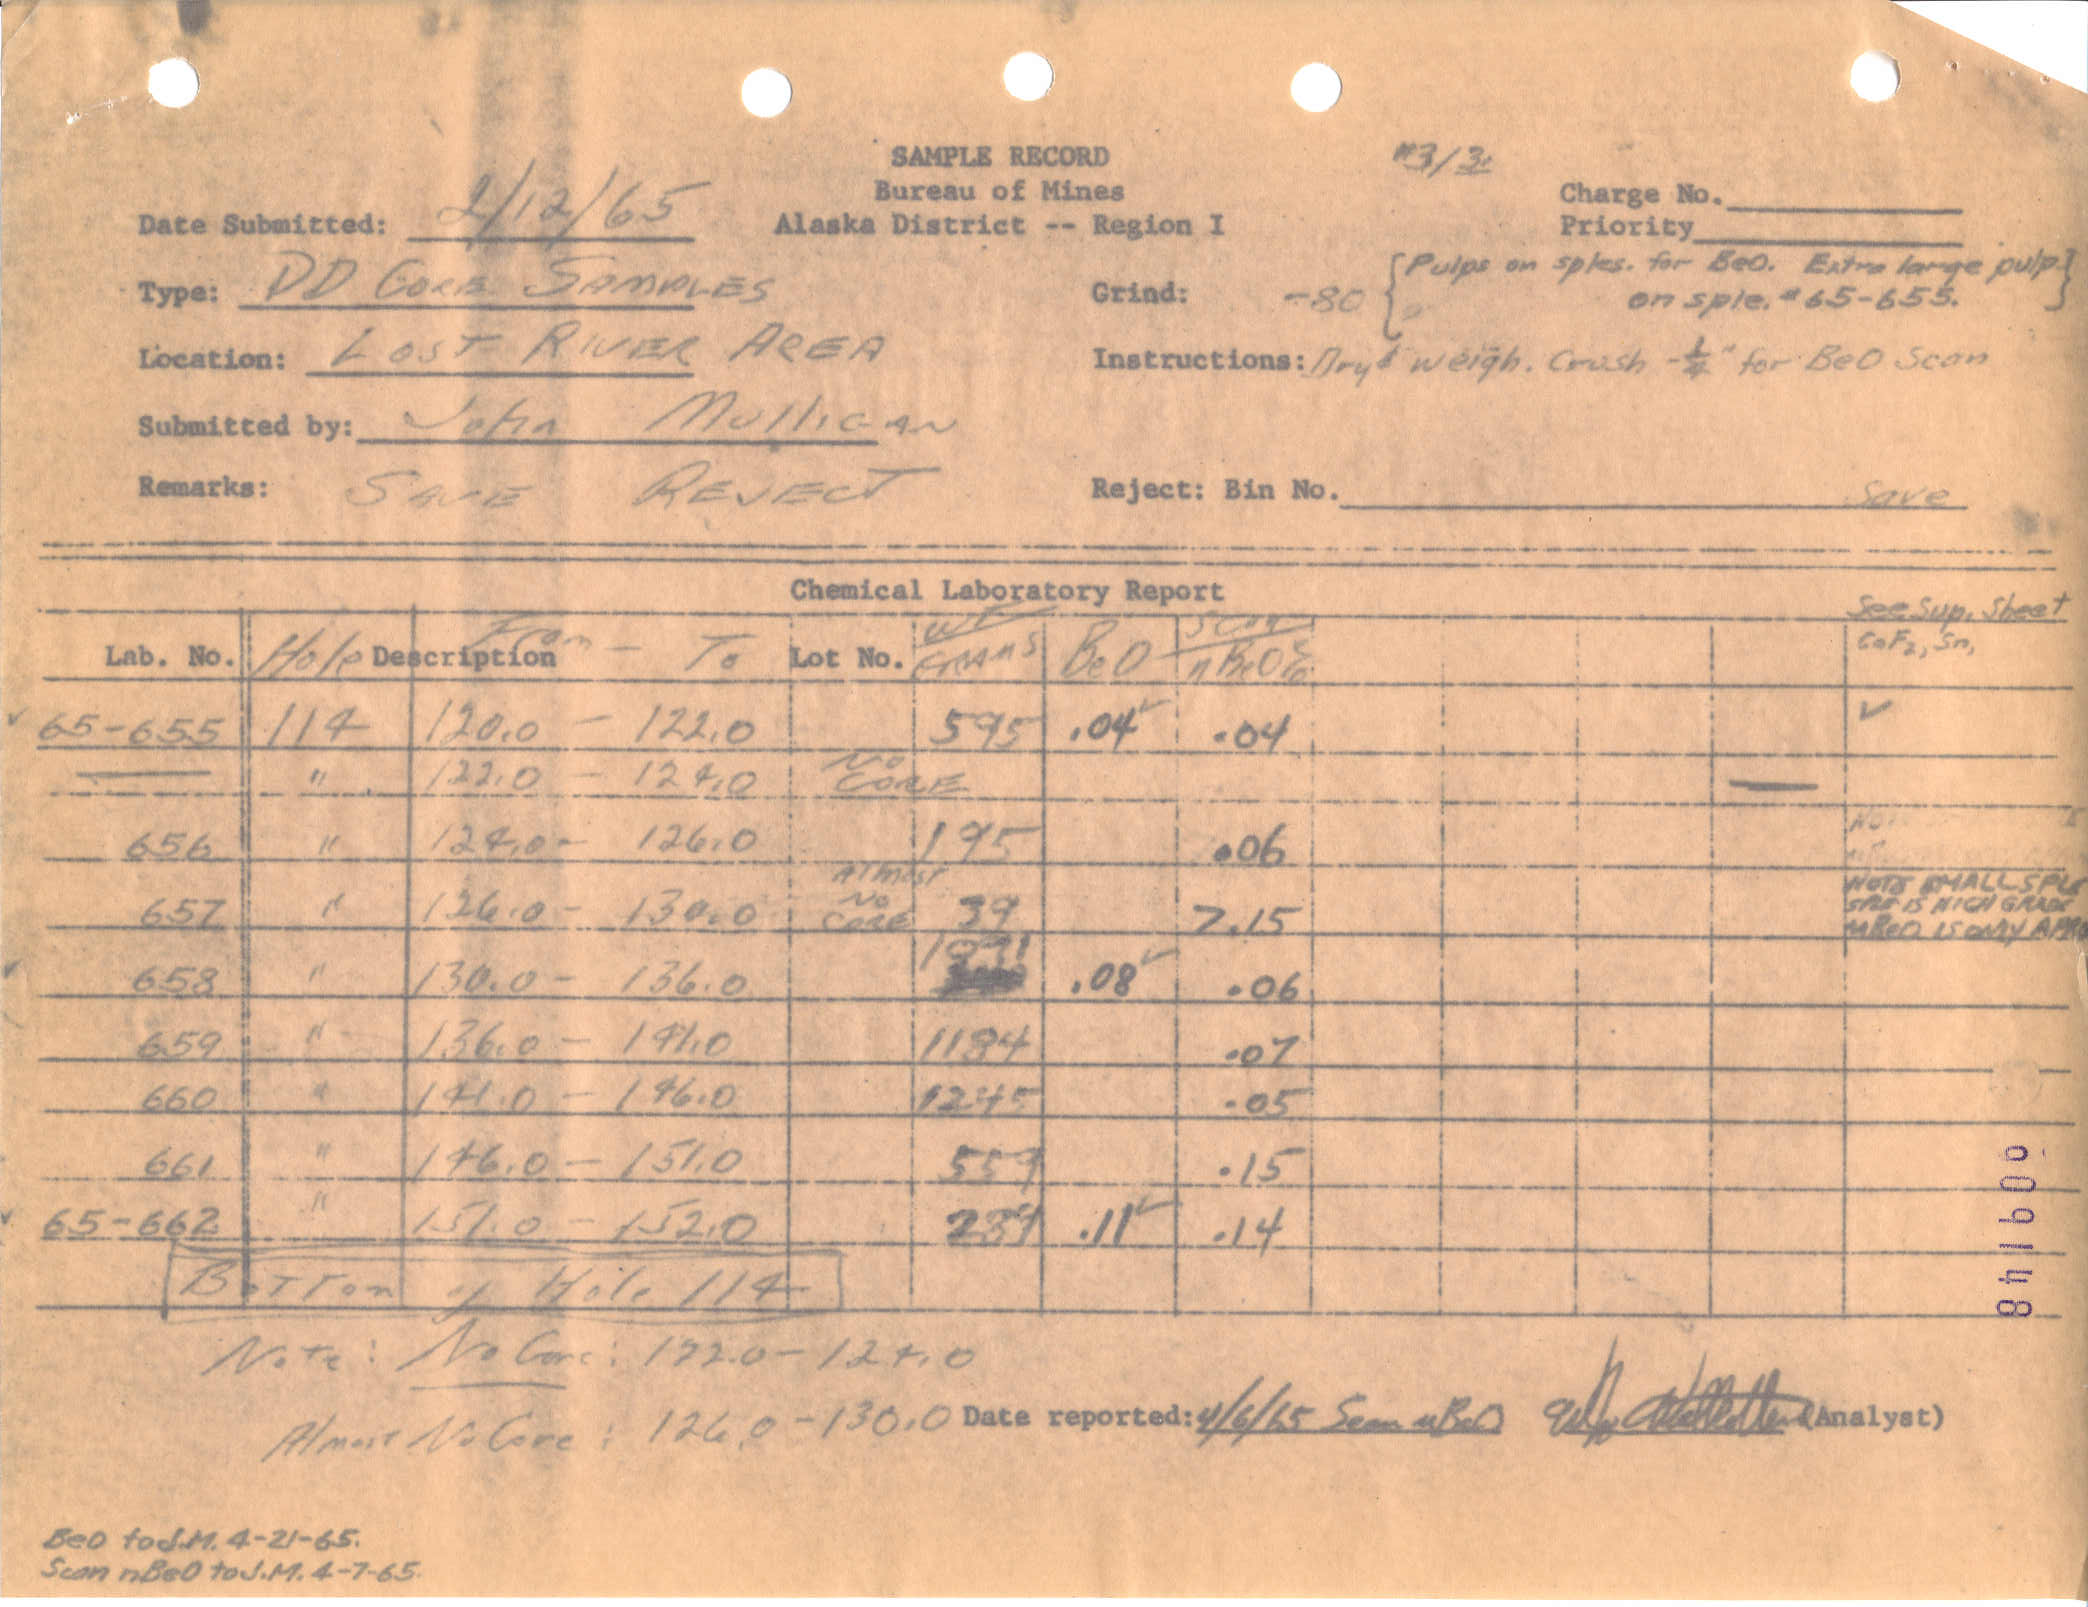 SAMPLE RECORD #3/3
Bureau of Mines Charge No.
Date Submitted: 2/12/65 Alaska District -- Region I Priority
Type: DD CORE SAMPLES Grind: -80 {Pulps on sples. for BeO. Extra large pulp
on sple. #65-655.}
Location: LOST RIVER AREA Instructions: Dry & weigh. Crush -1/4" for BeO Scan
Submitted by: John MULLIGAN
Remarks: SAVE REJECT Reject: Bin No. Save
Chemical Laboratory Report
See Sup. Sheet
Lab. No. Hole Description From - To Lot No. WT GRAMS BeO Scan nBeO% CaF2, Sn,
65-655 114 120.0 - 122.0 595 .04✓ .04 ✓
— " 122.0 - 124.0 NO CORE —
656 " 124.0 - 126.0 195 .06
657 " 126.0 - 130.0 Almost No CORE 39 7.15 NOTE SMALL SPLE
SPLE IS HIGH GRADE
nBeO IS ONLY APPRO
658 " 130.0 - 136.0 1091 .08✓ .06
659 " 136.0 - 141.0 1184 .07
660 " 141.0 - 146.0 1245 .05
661 " 146.0 - 151.0 559 .15
65-662 " 151.0 - 152.0 239 .11✓ .14
Bottom of Hole 114
Note: No Core: 122.0 - 124.0
Almost No Core: 126.0 - 130.0 Date reported: 4/6/65 Scan nBeO (Analyst)
BeO to J.M. 4-21-65.
Scan nBeO to J.M. 4-7-65.
009148